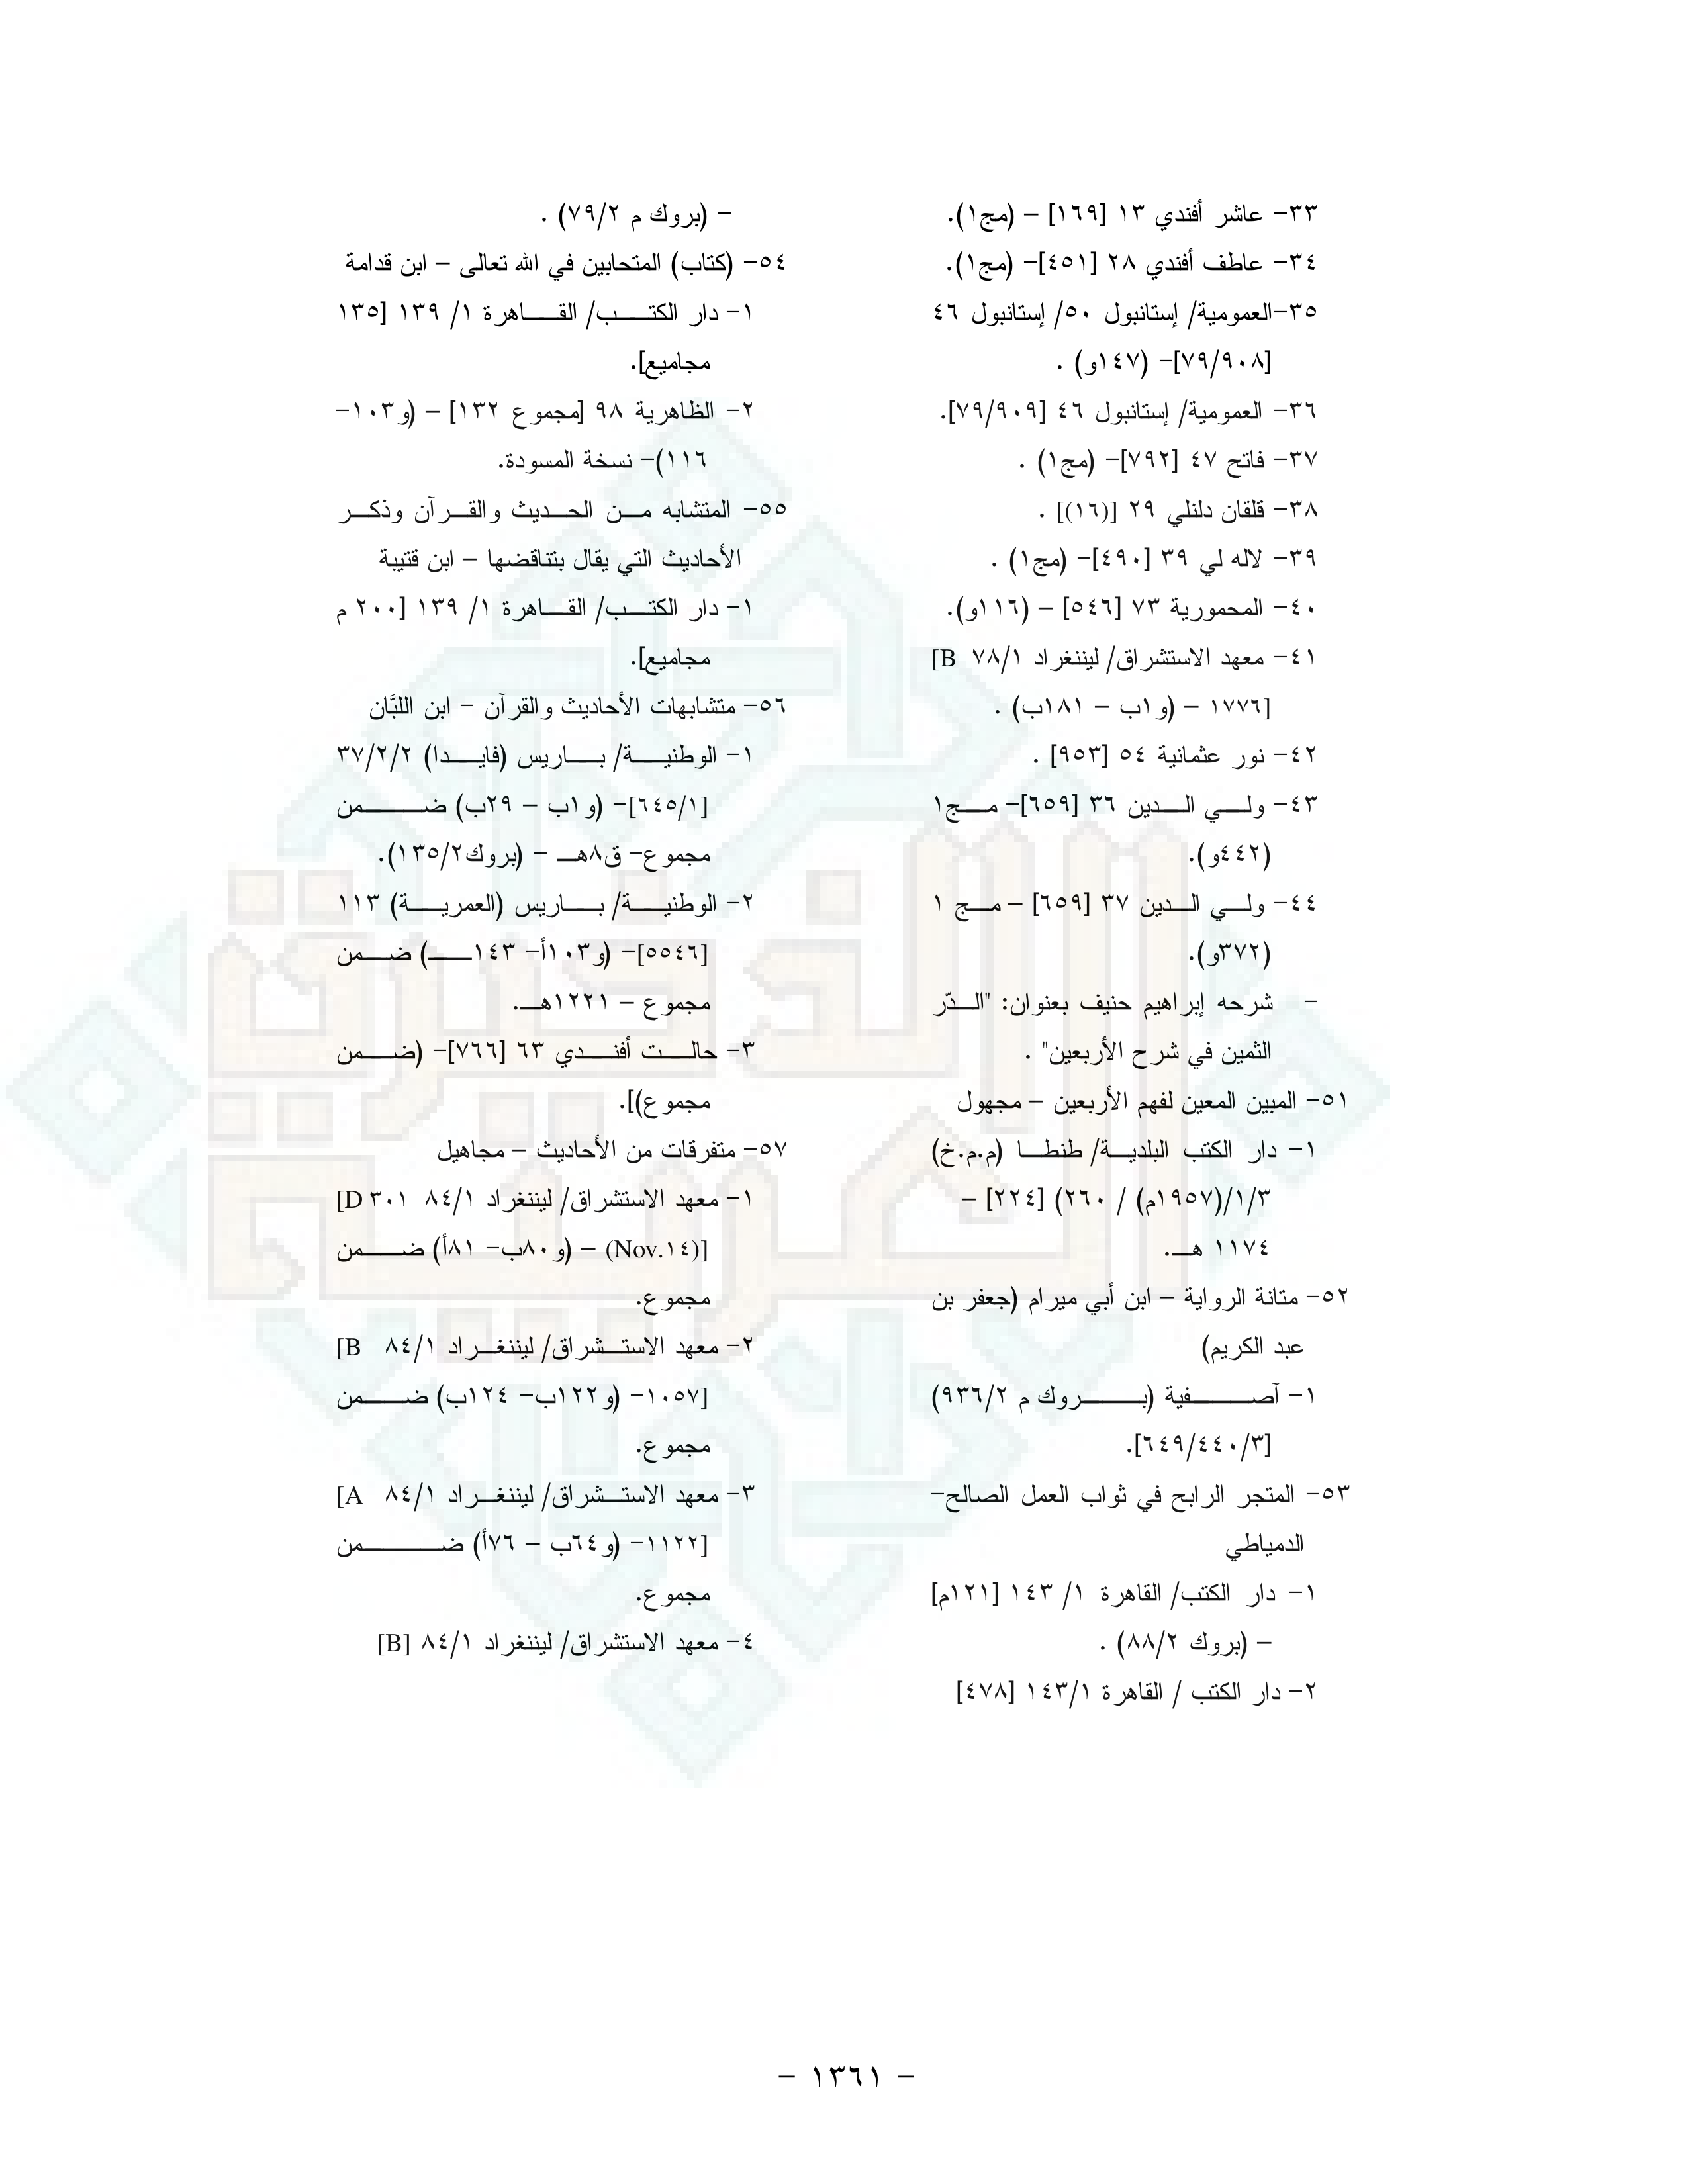 ٣٣- عاشر أفندي ١٣ [١٦٩] – (مج١).
٣٤- عاطف أفندي ٢٨ [٤٥١]- (مج١).
٣٥-العمومية/ إستانبول ٥٠/ إستانبول ٤٦
[٧٩/٩٠٨]- (١٤٧و) .
٣٦- العمومية/ إستانبول ٤٦ [٧٩/٩٠٩].
٣٧- فاتح ٤٧ [٧٩٢]- (مج١) .
٣٨- قلقان دلنلي ٢٩ [(١٦)] .
٣٩- لاله لي ٣٩ [٤٩٠]- (مج١) .
٤٠- المحمورية ٧٣ [٥٤٦] – (١١٦و).
٤١- معهد الاستشراق/ ليننغراد ٧٨/١ [B
١٧٧٦] – (و١ب – ١٨١ب) .
٤٢- نور عثمانية ٥٤ [٩٥٣] .
٤٣- ولي الدين ٣٦ [٦٥٩]- مج١
(٤٤٢و).
٤٤- ولي الدين ٣٧ [٦٥٩] – مج ١
(٣٧٢و).
- شرحه إبراهيم حنيف بعنوان: "الدّر
الثمين في شرح الأربعين" .
٥١- المبين المعين لفهم الأربعين – مجهول
١- دار الكتب البلدية/ طنطا (م.م.خ)
١/٣/(١٩٥٧م) / ٢٦٠) [٢٢٤] –
١١٧٤ هـ.
٥٢- متانة الرواية – ابن أبي ميرام (جعفر بن
عبد الكريم)
١- آصفية (بروك م ٩٣٦/٢)
[٦٤٩/٤٤٠/٣].
٥٣- المتجر الرابح في ثواب العمل الصالح-
الدمياطي
١- دار الكتب/ القاهرة ١/ ١٤٣ [١٢١م]
– (بروك ٨٨/٢) .
٢- دار الكتب / القاهرة ١٤٣/١ [٤٧٨]
- (بروك م ٧٩/٢) .
٥٤- (كتاب) المتحابين في الله تعالى – ابن قدامة
١- دار الكتب/ القاهرة ١/ ١٣٩ [١٣٥
مجاميع].
٢- الظاهرية ٩٨ [مجموع ١٣٢] – (و١٠٣-
١١٦)- نسخة المسودة.
٥٥- المتشابه من الحديث والقرآن وذكر
الأحاديث التي يقال بتناقضها – ابن قتيبة
١- دار الكتب/ القاهرة ١/ ١٣٩ [٢٠٠ م
مجاميع].
٥٦- متشابهات الأحاديث والقرآن - ابن اللبَّان
١- الوطنية/ باريس (فايدا) ٣٧/٢/٢
[٦٤٥/١]- (و١ب – ٢٩ب) ضمن
مجموع- ق٨هـ - (بروك١٣٥/٢).
٢- الوطنية/ باريس (العمرية) ١١٣
[٥٥٤٦]- (و١٠٣أ- ١٤٣ـ) ضمن
مجموع – ١٢٢١هـ.
٣- حالت أفندي ٦٣ [٧٦٦]- (ضمن
مجموع)].
٥٧- متفرقات من الأحاديث – مجاهيل
١- معهد الاستشراق/ ليننغراد ٨٤/١ [D ٣٠١
(Nov.١٤)] – (و٨٠ب- ٨١أ) ضمن
مجموع.
٢- معهد الاستشراق/ ليننغراد ٨٤/١ [B
١٠٥٧]- (و١٢٢ب- ١٢٤ب) ضمن
مجموع.
٣- معهد الاستشراق/ ليننغراد ٨٤/١ [A
١١٢٢]- (و٦٤ب – ٧٦أ) ضمن
مجموع.
٤- معهد الاستشراق/ ليننغراد ٨٤/١ [B]
- ١٣٦١ -
الذخيرة
العربية